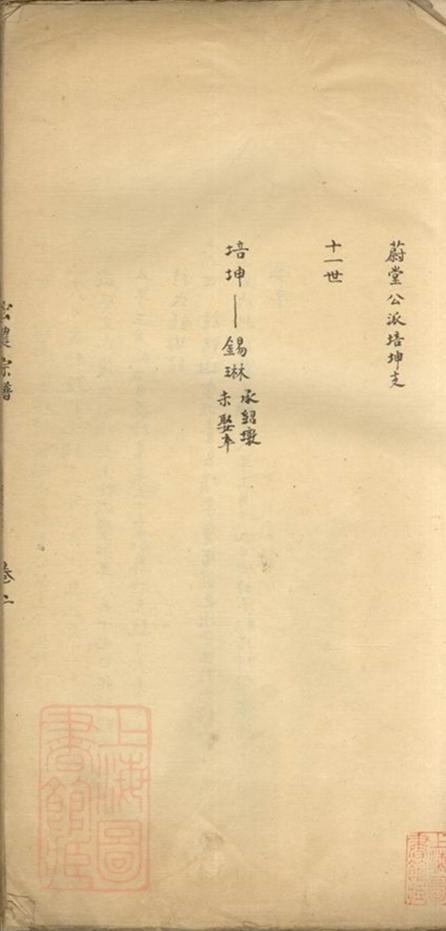 蔚堂公派培坤支
十一世
培坤—錫琳
承紹墩
未娶卒
宗譜
卷二
上海圖書館藏
上海圖書館藏